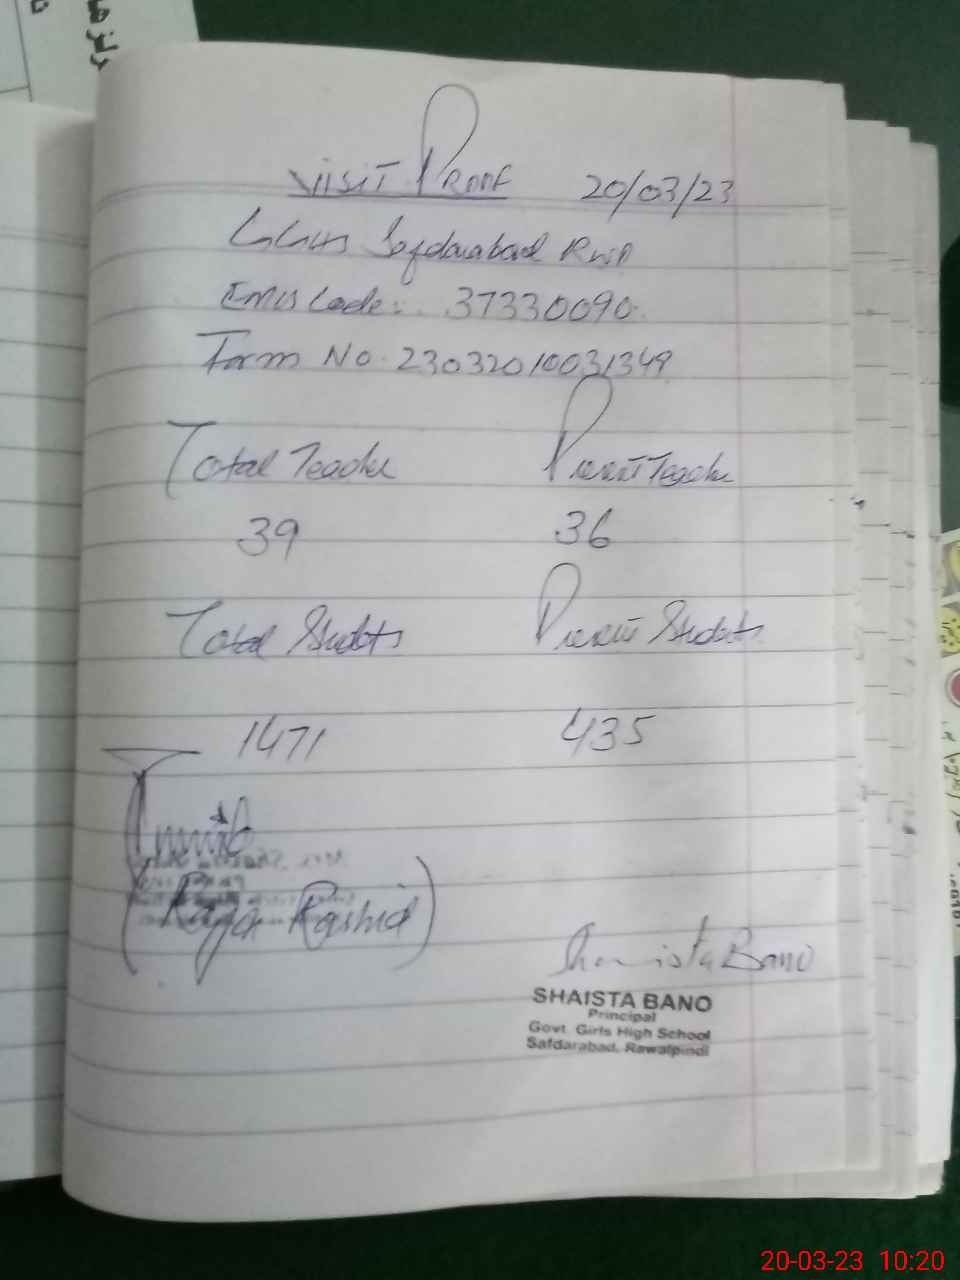 VISIT PROOF 20/03/23
GGHS Safdarabad RWP
EMIS Code: 37330090
Form No. 23032010031349
Total Teacher Present Teacher
39 36
Total Students Present Students
1471 435
(Raja Rashid)
Shaista Bano
SHAISTA BANO
Principal
Govt. Girls High School
Safdarabad, Rawalpindi
20-03-23 10:20